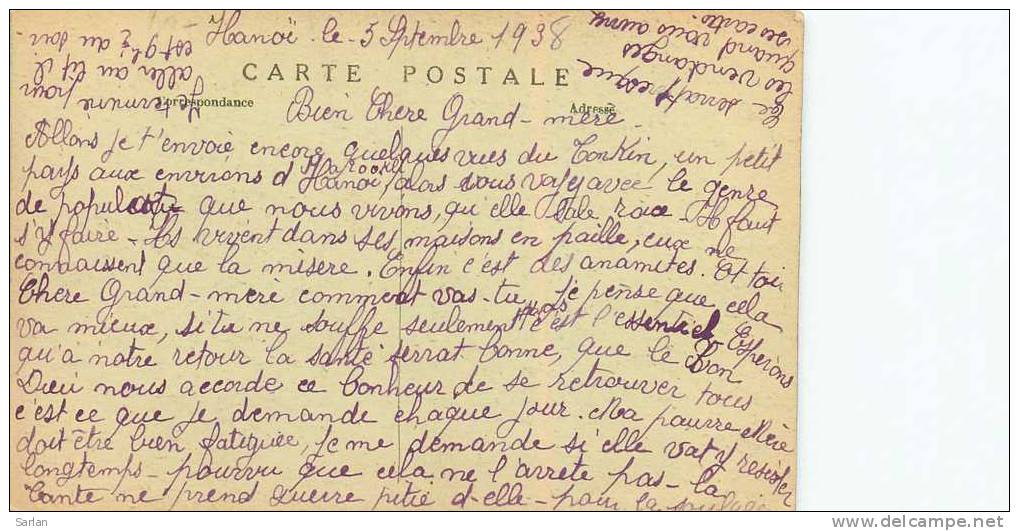 Hanoï - le 5 Septembre 1938
CARTE POSTALE
Correspondance
Adresse
Bien Chere Grand-mère
Allons je t'envoie encore quelques vues du Tonkin, un petit
pays aux environs d'Hanoï, alors vous voyez avec le genre
de population que nous vivons, qu'elle sale race - Il faut
s'y faire - Ils vivent dans ses maisons en paille, eux ne
connaissent que la misere. Enfin c'est des anamites. Et toi
Chere Grand-mère comment vas-tu, je pense que cela
va mieux, si tu ne souffre seulement pas c'est l'essentiel. Esperons
qu'a notre retour la santé serrat bonne, que le Bon
Dieu nous accorde ce bonheur de se retrouver tous
c'est ce que je demande chaque jour. Ma pauvre Mère
doit être bien fatiguée, je me demande si elle vat y resister
longtemps - pourvu que cela ne l'arrete pas - la
Tante ne prend guerre pitié d'elle - pour la soulager
Je termine
pour
aller au lit il
est 9h ½ du soir
Ce serrat presque
les vendanges
quand vous aurez
ses cartes
Sarlan
www.delcampe.net